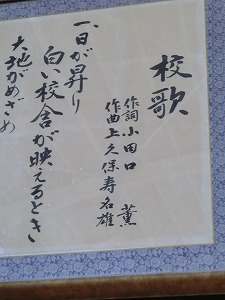 校歌
作詞 小田口 薫
作曲 上久保寿名雄
一、日が昇り
白い校舎が映えるとき
大地がめざめ